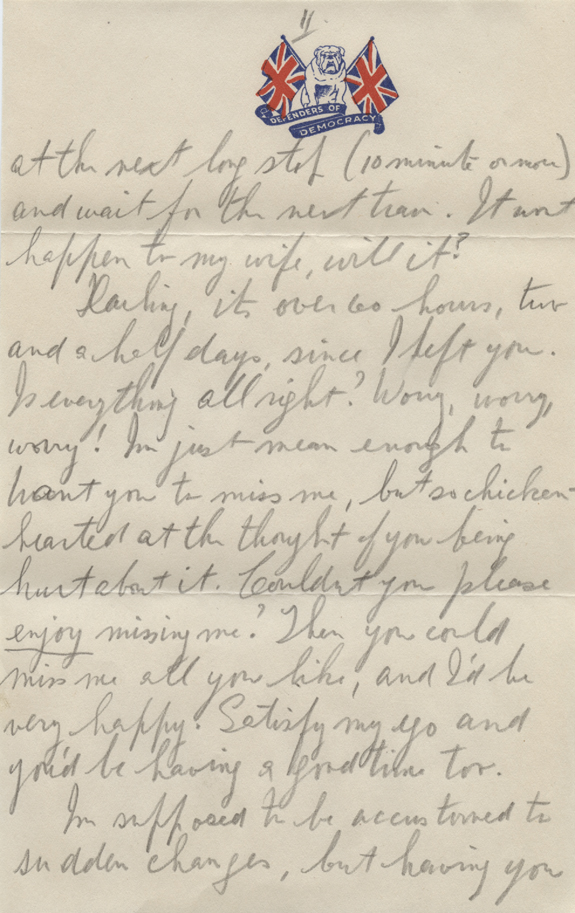 11.
DEFENDERS OF
DEMOCRACY
at the next long stop (10 minute or more)
and wait for the next train. It wont
happen to my wife, will it?
Darling, its over 60 hours, two
and a half days, since I left you.
Is everything all right? Worry, worry,
worry! Im just mean enough to
want you to miss me, but so chicken-
hearted at the thought of you being
hurt about it. Couldnt you please
enjoy missing me? Then you could
miss me all you like, and I'd be
very happy. Satisfy my ego and
you'd be having a good time too.
Im supposed to be accustomed to
sudden changes, but having you